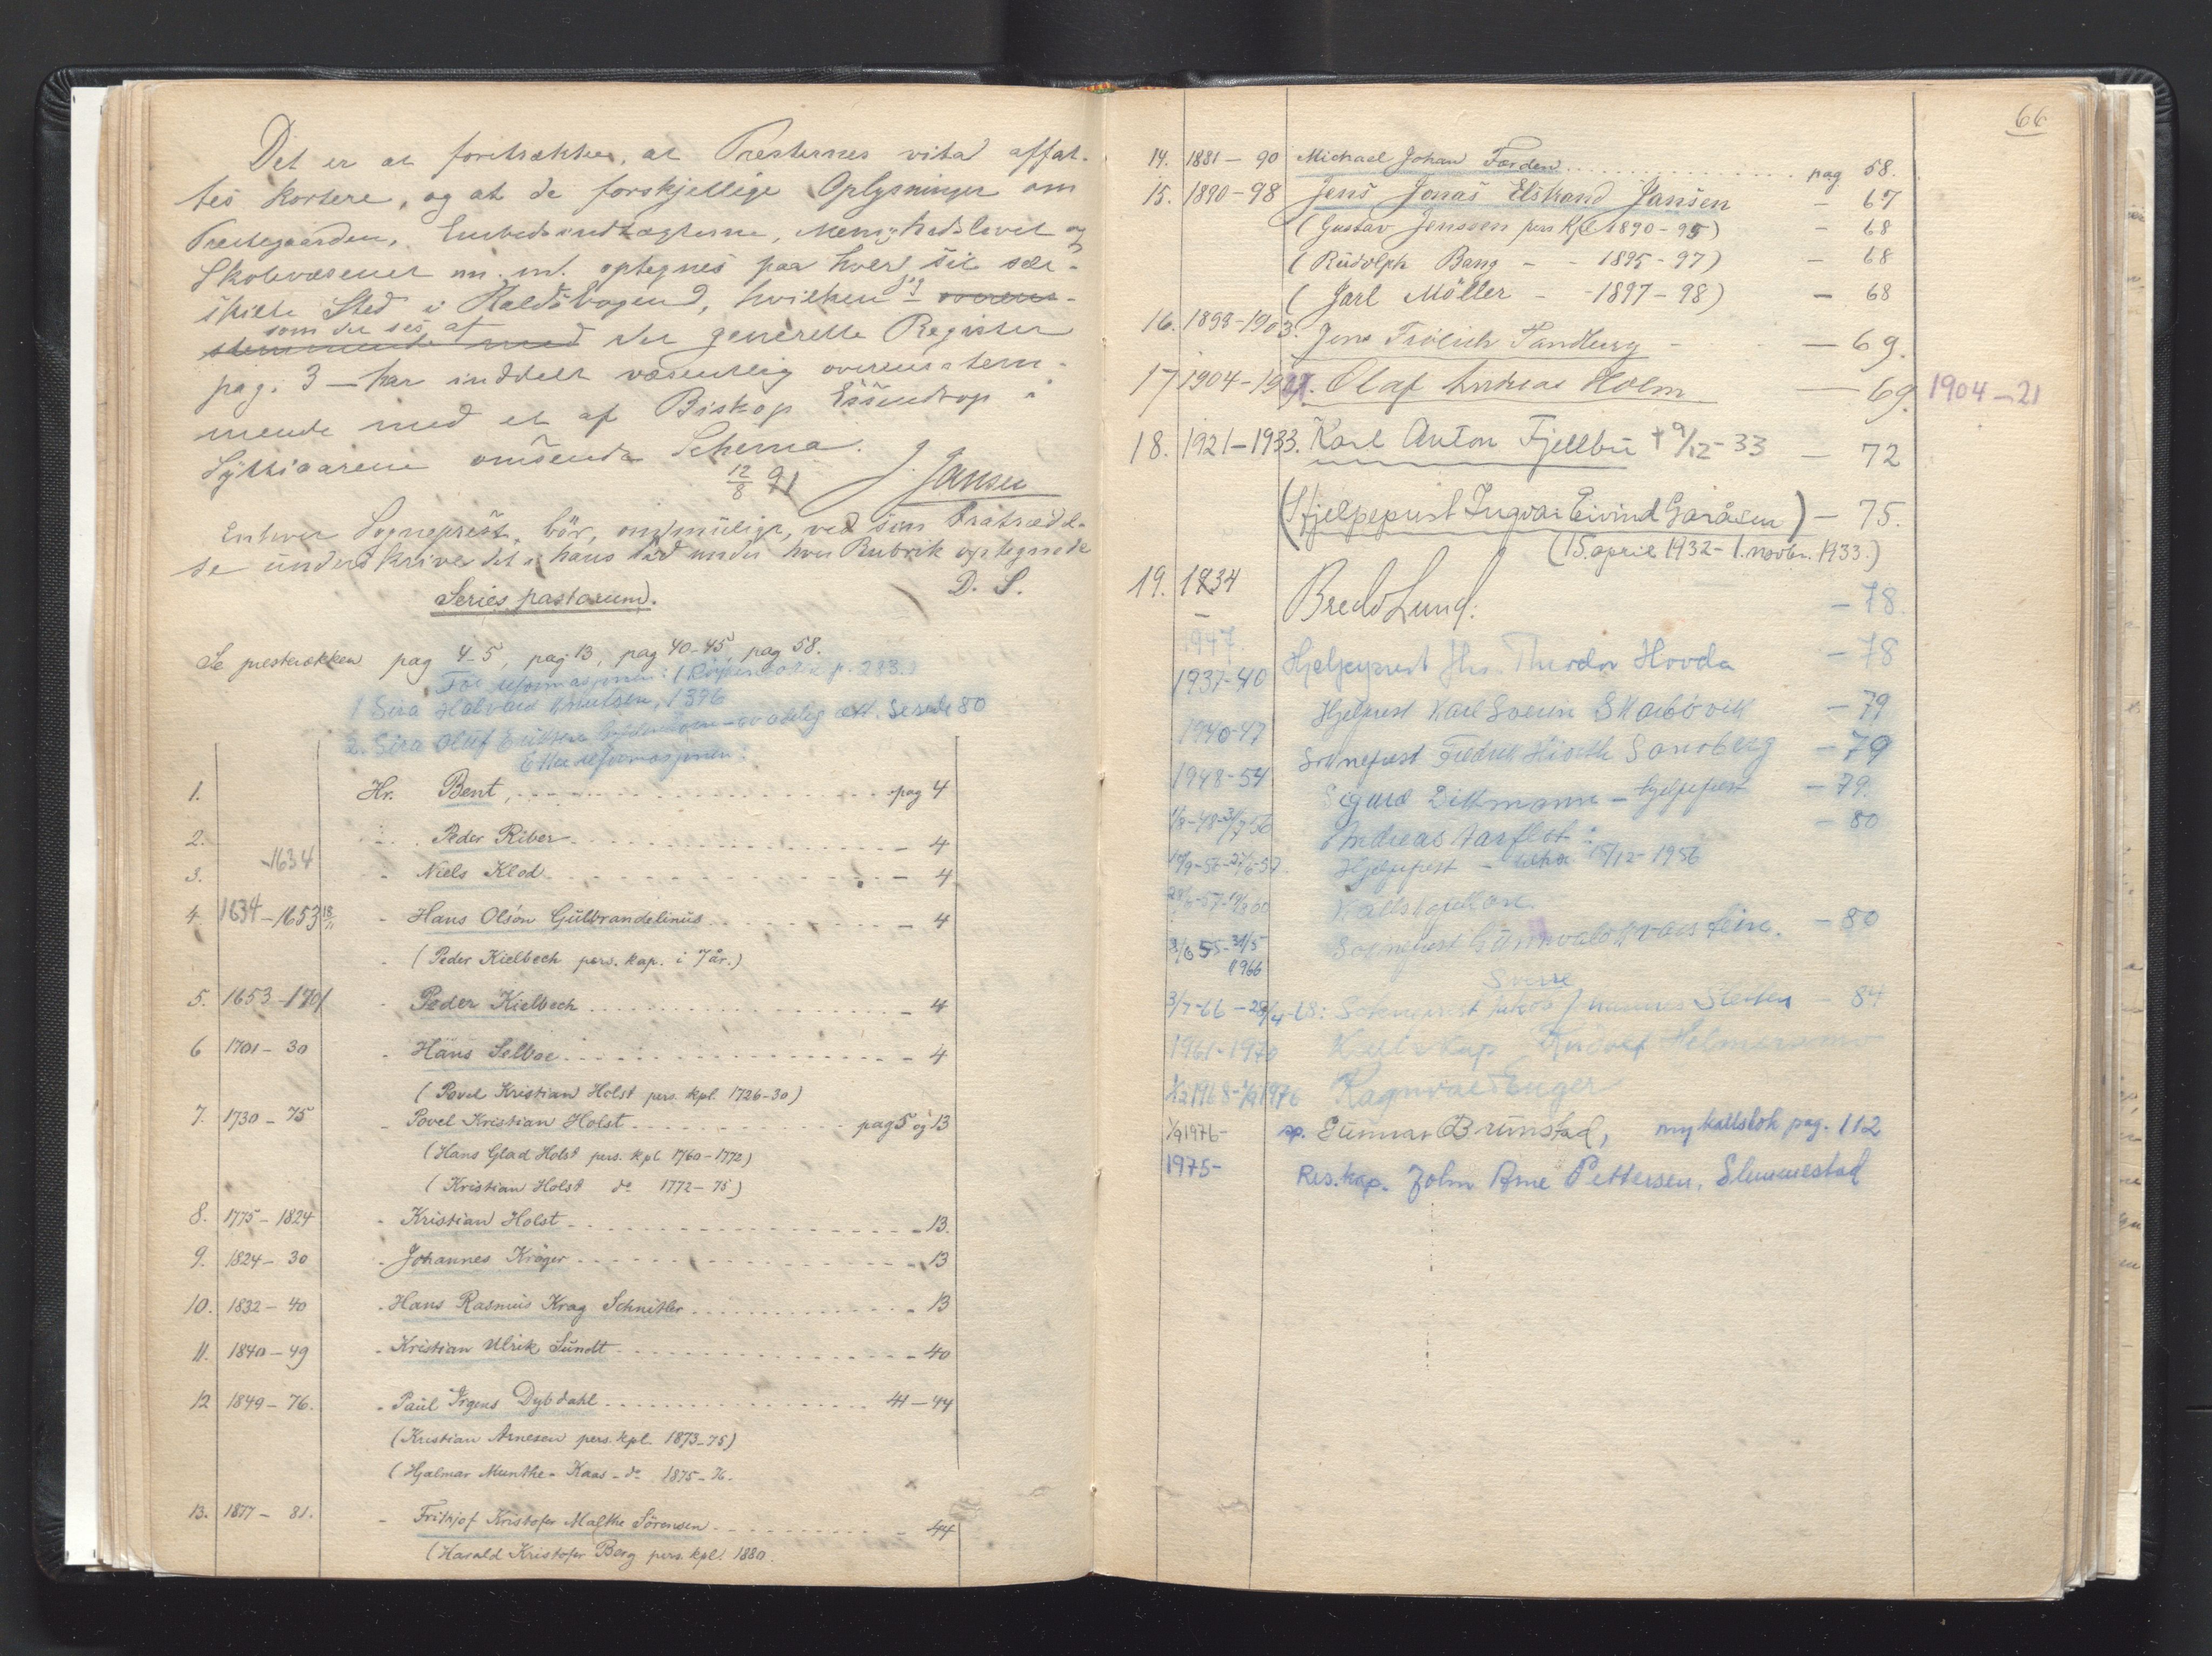 Det er at foretrække, at Præsternes vita affat-
tes kortere, og at de forskjellige Oplysninger om
Præstegaarden, Embedsindtægterne, Menighedslivet og
Skolevæsenet m. m. optegnes paa hver sit sær-
skilte Sted i Kaldsbogen, hvilken jeg overens-
som det ses af
stemmende med det generelle Register
pag. 3 – har inddelt væsentlig overensstem-
mende med et af Biskop Essendrop i
Syttiaarene omsendte Schema.
12/8 91 J. Jansen
Enhver Sogneprest bør, om muligt, ved sin Fratrædel-
se underskrive det i hans tid under hver Rubrik optegnede
D. S.
Series pastorum.
Se presterækken pag 4-5, pag 13, pag 40-45, pag 58.
Før reformasjonen: ( p. 283.)
1 Sira Halvard Knutsen, 1396
2. Sira Oluf Eriksen av adelig ætt. Se side 80
Etter reformasjonen:
1. Hr. Bent, pag 4
2. Peder Riber – 4
3. -1634 - Niels Klod – 4
4. 1634-1653 18/11 - Hans Olsøn Gulbrandelinus – 4
(Peder Kielbech pers. kap. i 7 år.)
5. 1653-1701 - Peder Kielbech – 4
6 1701-30 - Hans Selboe – 4
(Povel Kristian Holst pers. kpl. 1726-30)
7. 1730-75 - Povel Kristian Holst pag 5 og 13
(Hans Glad Holst pers. kpl. 1760-1772)
(Kristian Holst do 1772-75)
8. 1775-1824 - Kristian Holst – 13.
9. 1824-30 - Johannes Krøger – 13
10. 1832-40 - Hans Rasmus Krag Schnitler – 13
11. 1840-49 - Kristian Ulrik Sundt – 40
12 1849-76. - Paul Irgens Dybdahl 41-44
(Kristian Arnesen pers. kpl. 1873-75)
(Hjalmar Munthe-Kaas - do 1875-76.
13. 1877-81. - Frithjof Kristofer Malthe Sørensen – 44
(Harald Kristofer Berg pers. kpl. 1880.
66
14. 1881-90 Michael Johan Færden pag 58.
15. 1890-98 Jens Jonas Elstrand Jansen – 67
(Gustav Jensen pers Kpl 1890-95) – 68
(Rudolph Bang - - 1895-97) – 68
(Jarl Möller - - 1897-98) – 68
16. 1899-1903. Jens Frölich Tandberg – 69.
17 1904-1921. Olaf Andreas Holm – 69. 1904-21
18. 1921-1933. Karl Anton Fjellbu † 9/12-33 – 72
(Hjelpeprest Ingvar Eivind Garåsen) – 75.
(15. april 1932 - 1. novbr. 1933.)
19. 1934 Bredo Lund. – 78.
–
1947.
1937-40 Hjelpeprest Theodor Hovda – 78
1940-47 Hjelprest Karl Sverre Skarbövik – 79
1948-54 Sogneprest Fredrik Hiorth Sandberg – 79
1/8-48-31/7-56 Sigurd Dittmann - hjelpeprest – 79.
Andreas Aarflot: – 80
Hjelpeprest - 15/12-1956
Kallskapellan.
3/6 55-31/5 1966 Sogneprest Gunnvald Kvarstein. – 80
Sverre
3/7-66 – 29/4-68: Sokneprest Jakob Johannes Sletten – 84
1961-1970 Kallskap Rudolf Helmersen
1/2 1968-1/9 1976 Ragnvald Enger
1/9 1976- sp. Gunnar Brunstad, ny kallsbok pag. 112
1975- Res.kap. John Arne Pettersen, Slemmestad